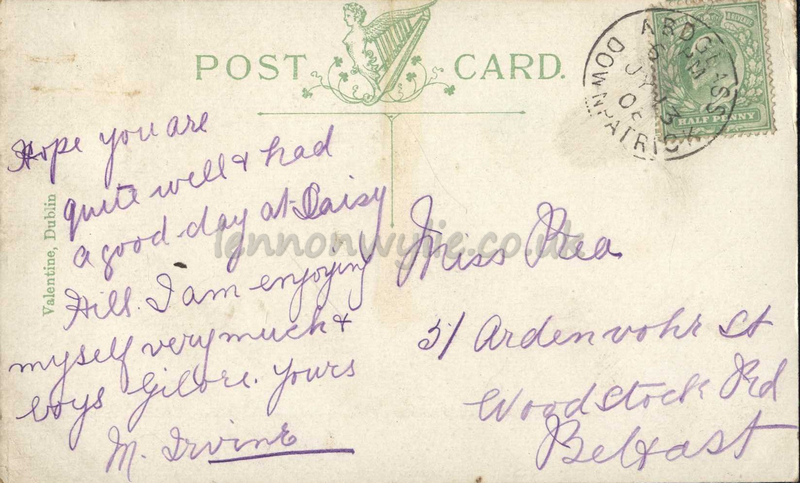 POST CARD.
ARDGLASS
6 PM
JY 13
DOWNPATRICK
HALF PENNY
Valentine, Dublin
Hope you are
quite well & had
a good day at Daisy
Hill. I am enjoying
myself very much &
boys Gilore. Yours
M. Irvine
Miss Rea
51 Ardenvohr St
Woodstock Rd
Belfast
lennonwylie.co.uk